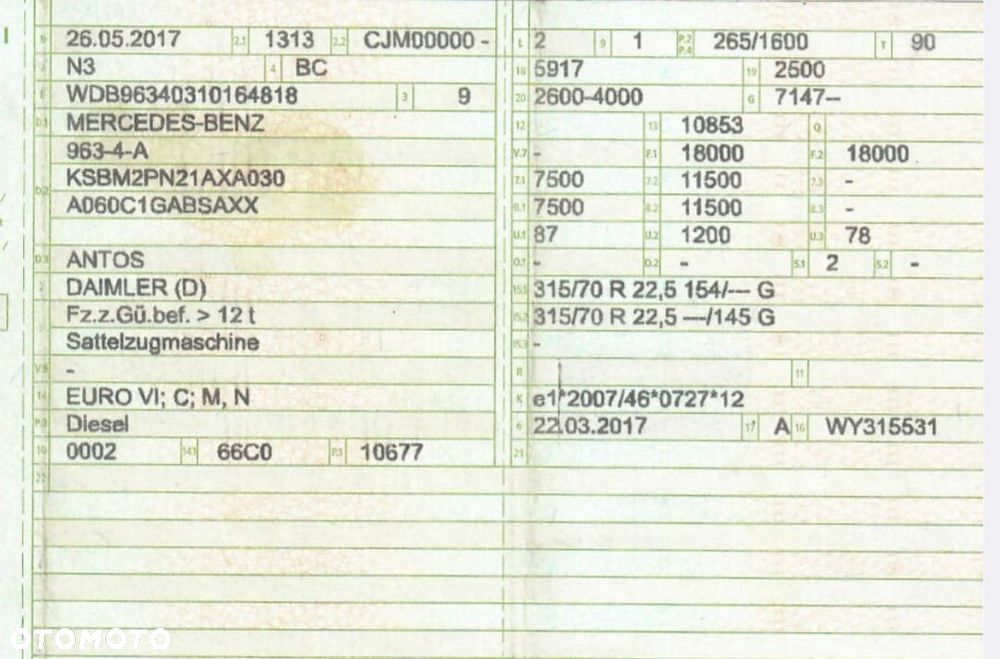 B 26.05.2017 2.1 1313 2.2 CJM00000 -
J N3 4 BC
E WDB96340310164818 3 9
D.1 MERCEDES-BENZ
963-4-A
KSBM2PN21AXA030
D.2 A060C1GABSAXX
D.3 ANTOS
2 DAIMLER (D)
Fz.z.Gü.bef. > 12 t
5 Sattelzugmaschine
V.9 -
14 EURO VI; C; M, N
P.3 Diesel
10 0002 14.1 66C0 P.1 10677
22
L 2 9 1 P.2 P.4 265/1600 T 90
18 5917 19 2500
20 2600-4000 G 7147--
12 13 10853 Q
V.7 - F.1 18000 F.2 18000
7.1 7500 7.2 11500 7.3 -
8.1 7500 8.2 11500 8.3 -
U.1 87 U.2 1200 U.3 78
O.1 - O.2 - S.1 2 S.2 -
15.1 315/70 R 22,5 154/--- G
15.2 315/70 R 22,5 ---/145 G
15.3 -
R 11
K e1*2007/46*0727*12
6 22.03.2017 17 A 16 WY315531
21
OTOMOTO